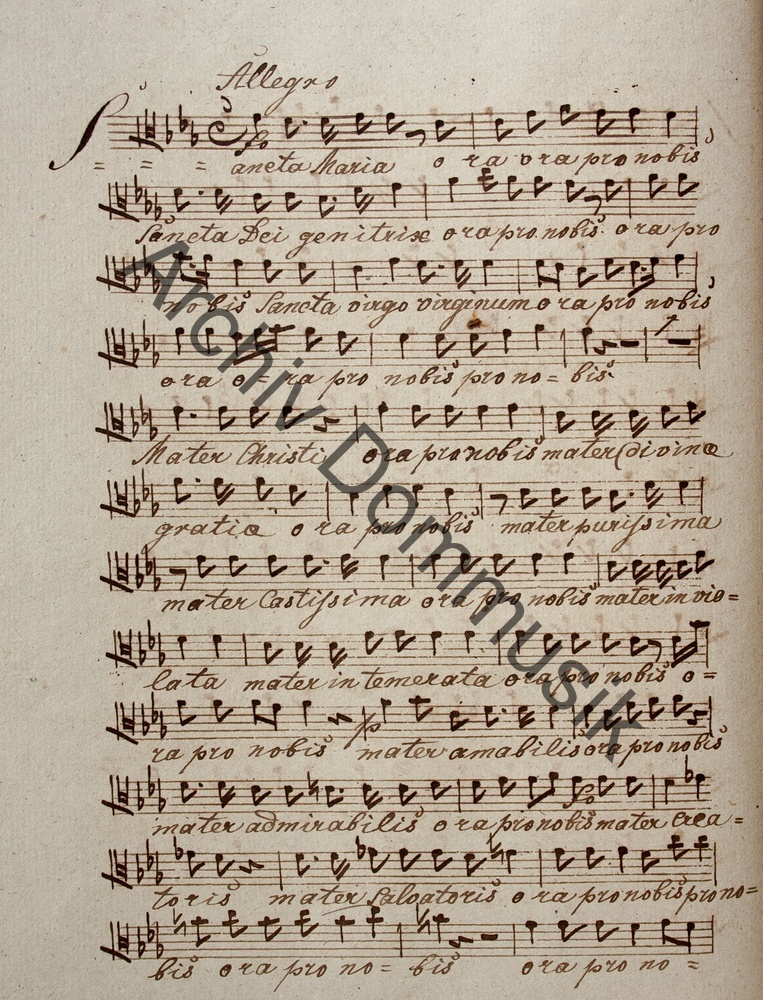 Allegro
Sancta Maria o ra ora pro nobis
Sancta Dei genitrix ora pro nobis. ora pro
nobis Sancta virgo virginum ora pro nobis
ora o = ra pro nobis pro no = bis.
Mater Christi ora pro nobis mater divinæ
gratiæ o ra pro nobis mater purissima
mater Castissima ora pro nobis mater in vio =
lata mater in temerata ora pro nobis o =
ra pro nobis mater amabilis ora pro nobis
mater admirabilis o ra pro nobis mater Crea =
toris mater Salvatoris o ra pro nobis pro no =
bis ora pro no = bis ora pro no =
Archiv Dommusik